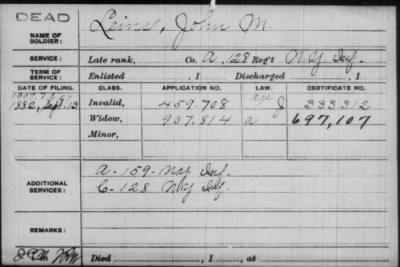 DEAD
NAME OF SOLDIER: Leins, John M.
SERVICE: Late rank, Co. A, 128 Reg't N.Y. Inf.
TERM OF SERVICE: Enlisted , 1 Discharged , 1
DATE OF FILING. CLASS. APPLICATION NO. LAW. CERTIFICATE NO.
1882, Sept. 13 Invalid, 459.708 age J 333.312
Widow, 907.814 a 697,107
Minor,
ADDITIONAL SERVICES: A-159-N.Y. Inf.
C-128 N.Y. Inf.
REMARKS:
Died , 1 , at